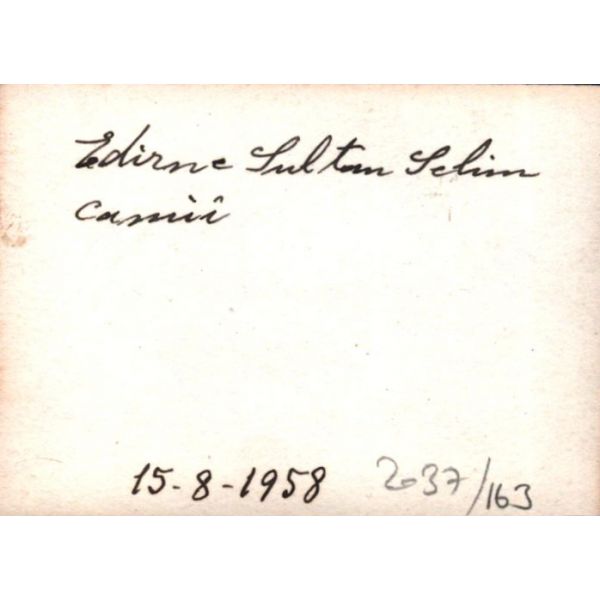 Edirne Sultan Selim
camii
15-8-1958 2037/163